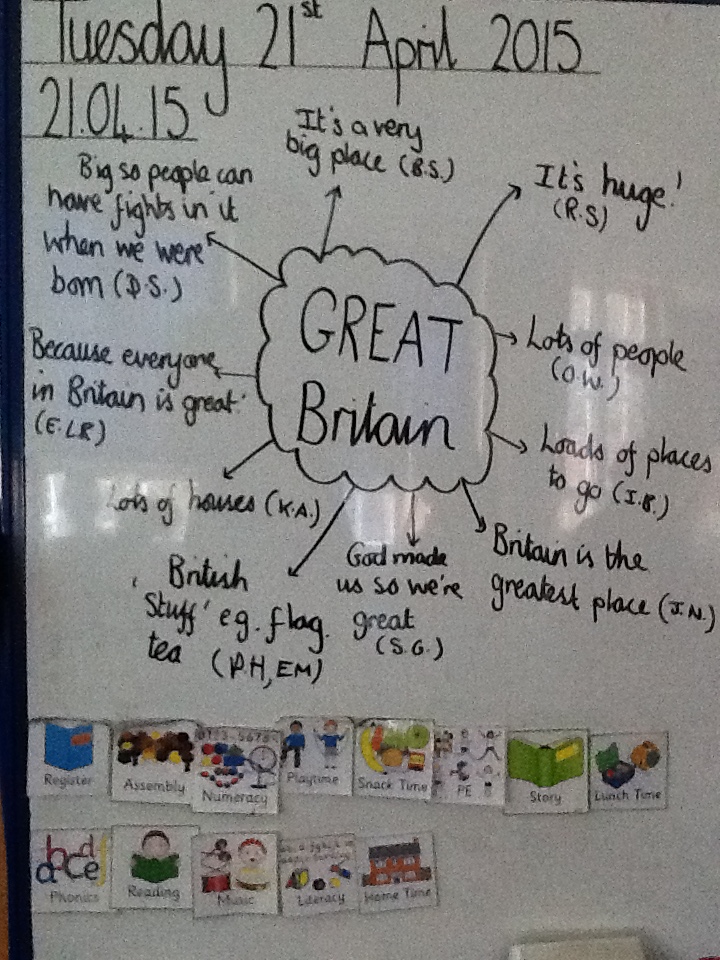 Tuesday 21st April 2015
21.04.15
It's a very
big place (B.S.)
It's huge!
(R.S)
Big so people can
have fights in it
when we were
born (D.S.)
GREAT
Britain
Lots of people
(O.W.)
Because everyone
in Britain is great.
(E.LR)
Loads of places
to go (I.B.)
Lots of houses (K.A.)
Britain is the
greatest place (J.N.)
God made
us so we're
great
(S.G.)
'British
Stuff' eg. flag.
tea (P.H, EM)
Register
Assembly
Numeracy
Playtime
Snack Time
PE
Story
Lunch Time
abcde
Phonics
Reading
Music
Literacy
Home Time